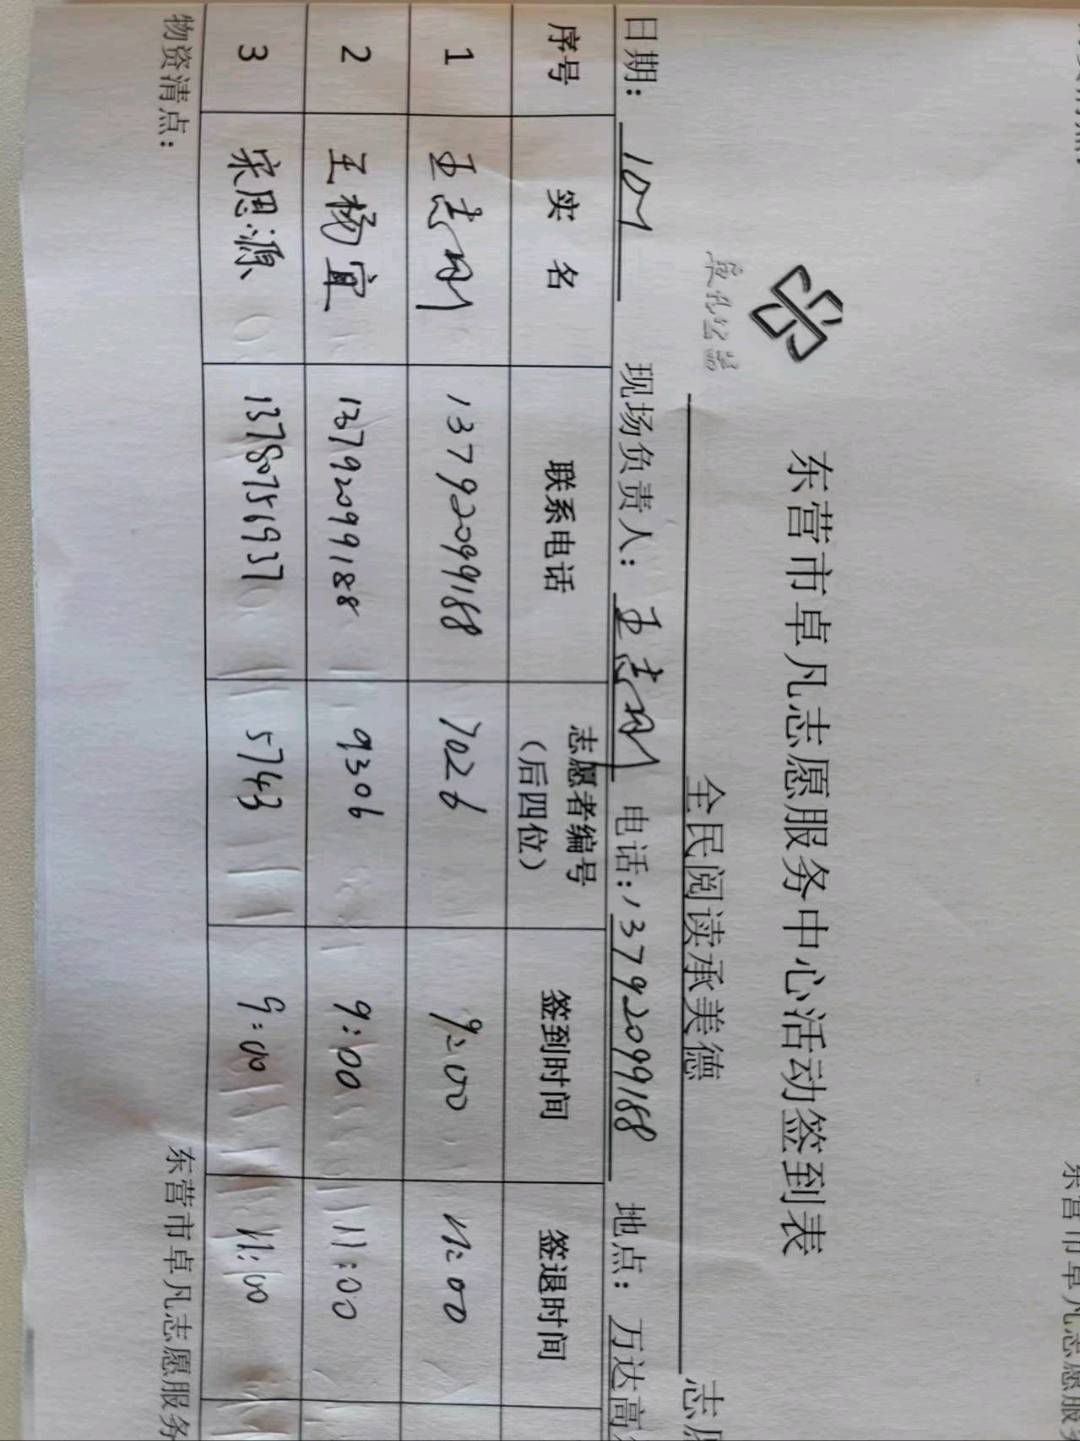 东营市卓凡志愿服务中心活动签到表
卓凡公益
全民阅读承美德 志愿
日期： 现场负责人： 电话：13792099168 地点： 万达高
序号 实 名 联系电话 志愿者编号（后四位） 签到时间 签退时间
1 13792099168 7026 9:00 11:00
2 王杨宜 13792099188 9306 9:00 11:00
3 宋思源 13780756937 5743 9:00 11:00
物资清点： 东营市卓凡志愿服务
东营市卓凡志愿服务